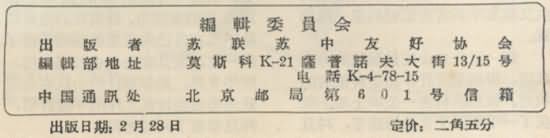 編輯委員会
出版者 苏联苏中友好协会
編輯部地址 莫斯科K-21薩普諾夫大街13/15号
电話K-4-78-15
中国通訊处 北京邮局第601号信箱
出版日期:2月28日 定价:二角五分